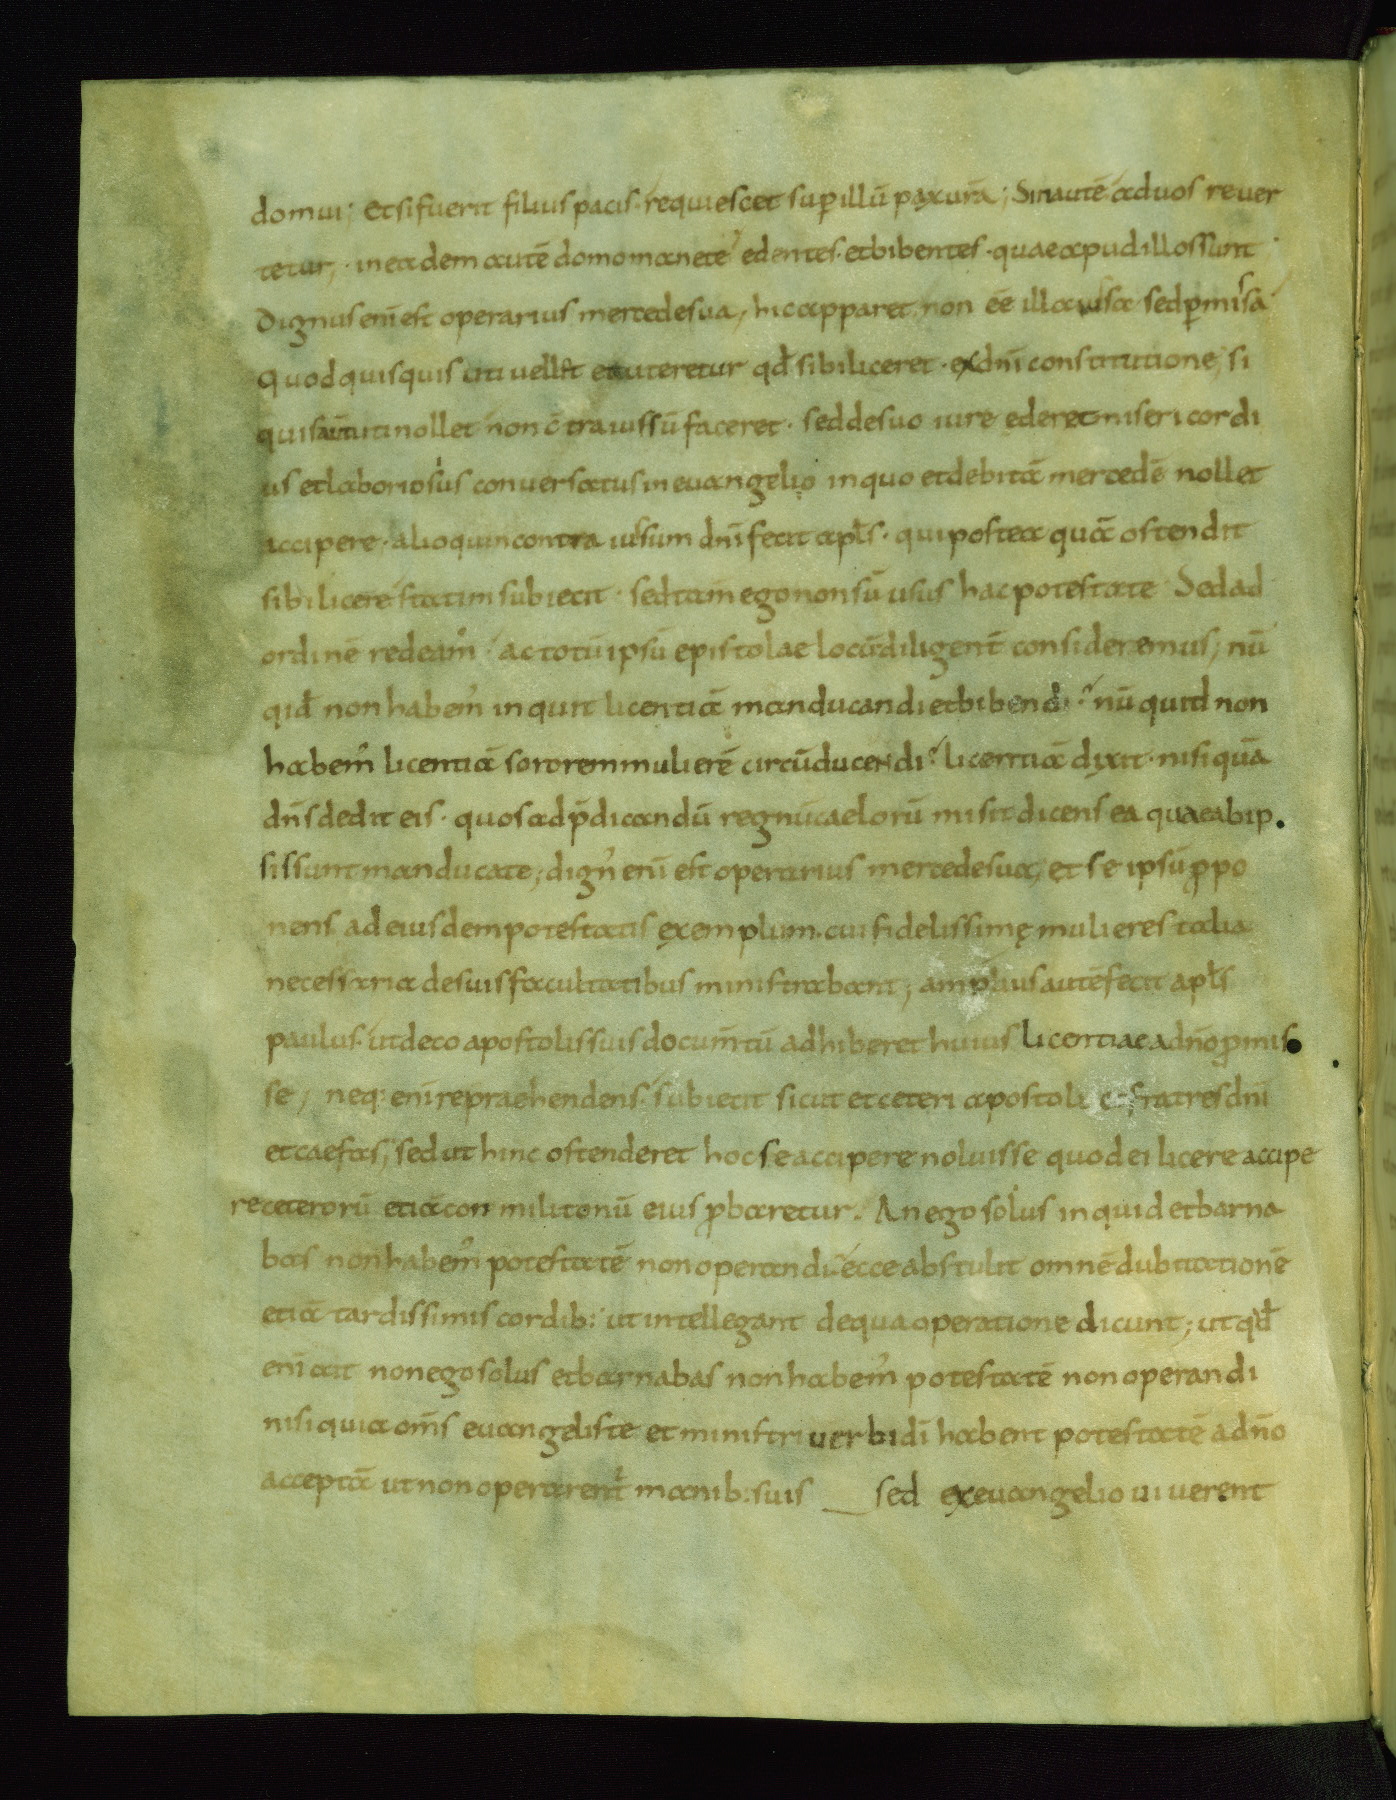 domui; et si fuerit filius pacis· requiescet sup illū pax urā; Sin autē ad uos reuer
tetur;· in eadem autē domo manete edentes· et bibentes· quae apud illos sunt·
Dignus enī est operarius mercede sua, hic apparet non eē illa iusa sed pmissa
Quod quisquis uti uellet eo uteretur qđ sibi liceret· ex dnī constitutione, si
quis aūt uti nollet non c̄tra iussū faceret· sed de suo iure ederet misericordi
us et laboriosius conuersatus in euangelio in quo et debitā mercedē nollet
accipere· alioquin contra iussum dnī fecit apls̄· qui postea quā ostendit
sibi licere statim subiecit· sed tam̄ ego non sū usus hac potestate Sed ad
ordinē redeam᾽ ac totū ipsū epistolae locū diligent̄ consideremus; nū
qid̄ non habem᾽ inquit licentiā manducandi et bibendi? nū quid non
habem᾽ licentiā sororem mulierē circūducendi? licentiā dixit· nisi quā
dn̄s dedit eis· quos ad p̄dicandū regnū caelorū misit dicens ea quae ab ip
sis sunt manducate; dign᾽ enī est operarius mercede sua, et se ipsū ꝓpo
nens ad eiusdem potestatis exemplum· cui fidelissimę mulieres talia
necessaria de suis facultatibus ministrabant; amplius autē fecit apls̄
paulus· ut de coapostolis suis docum̄tū adhiberet huius licentiae a dn̄o ꝓmis
se; neq: enī repraehendens· subiecit sicut et ceteri apostoli et fratres dnī
et caefas; sed ut hinc ostenderet hoc se accipere noluisse quod ei licere accipe
re ceterorū etiā conmilitonū eius ꝓbaretur. An ego solus inquid et barna
bas non habem᾽ potestatē non operandi? ecce abstulit omnē dubitationē
etiā tardissimis cordib: ut intellegant de qua operatione dicunt; ut qđ
enī ait non ego solus et barnabas non habem᾽ potestatē non operandi
nisi quia om̄s euangeliste et ministri uerbi dī habent potestatē a dn̄o
acceptā ut non operarent᾽ manib: suis sed ex euangelio uiuerent